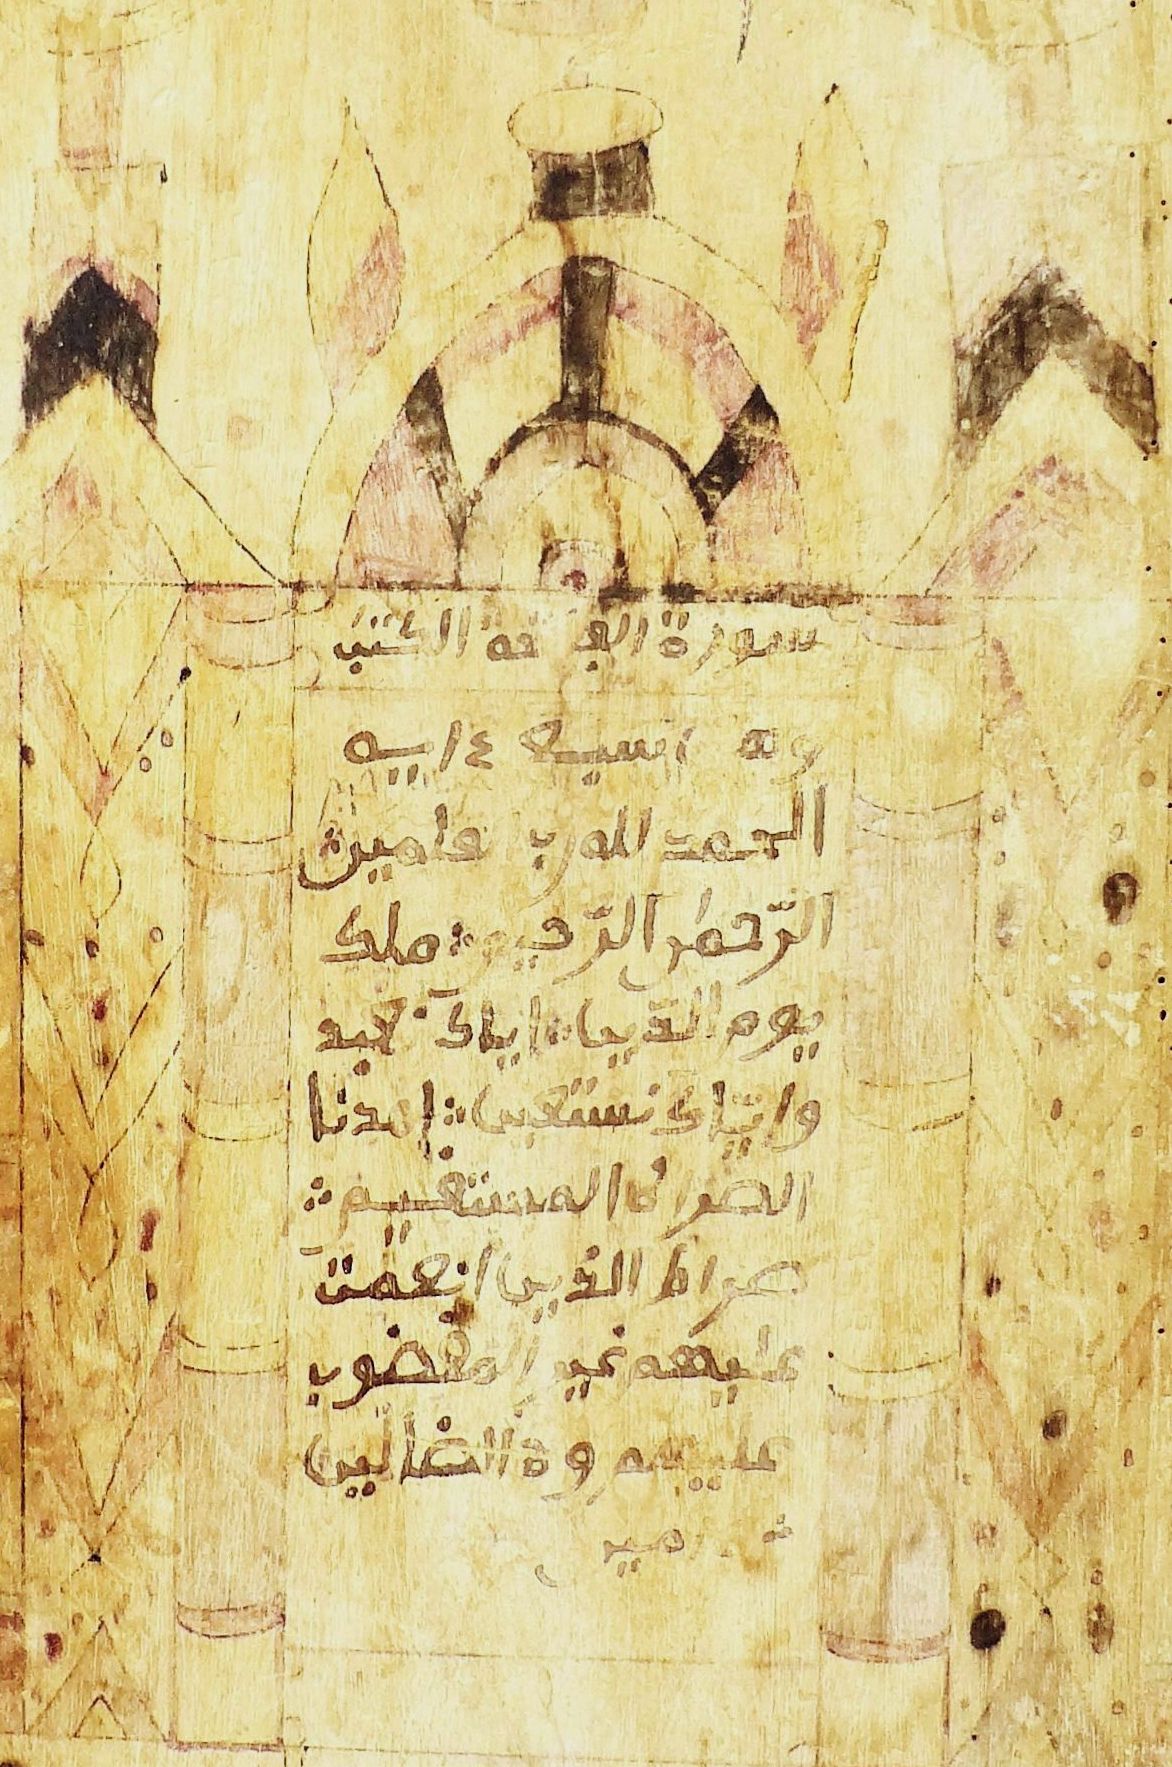 سورة الفاتحة الكتب
الحمد لله رب علمين
الرّحمٰن الرّحيم ؞ ملك
يوم الدّين ؞ اياك نعبد
وايّاك نستعين ؞ اهدنا
الصراط المستقيم ؞
صراط الذين انعمت
عليهم غير المغضوب
عليهم ولا الضالين